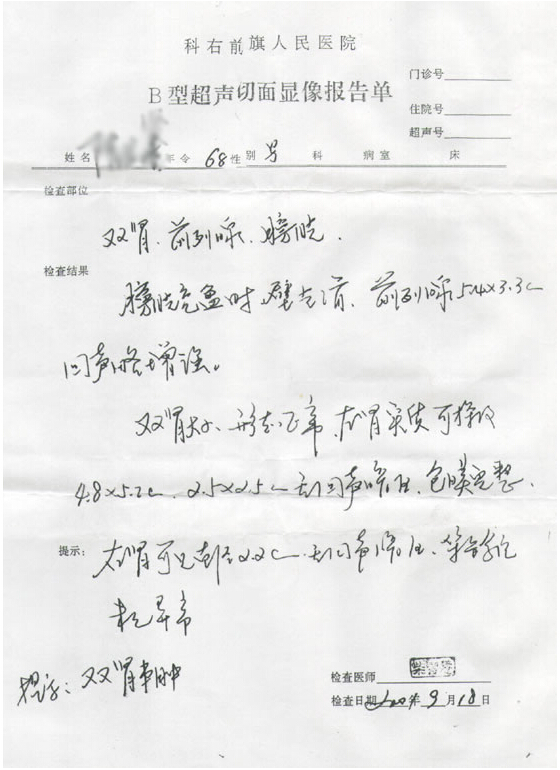 科右前旗人民医院
B型超声切面显像报告单
门诊号
住院号
超声号
姓名 年令 68 性别 男 科 病室 床
检查部位
双肾、前列腺、膀胱.
检查结果
膀胱充盈时,壁光滑、前列腺5.4×3.3c
回声略增强。
双肾大小、形态正常,右肾实质可探及
4.8×5.2c、2.5×2.5c 无回声暗区,包膜完整.
提示: 左肾可见直径2.2c 无回声暗区,集合系统
未见异常
提示:双肾囊肿
检查医师
检查日期 年9月18日